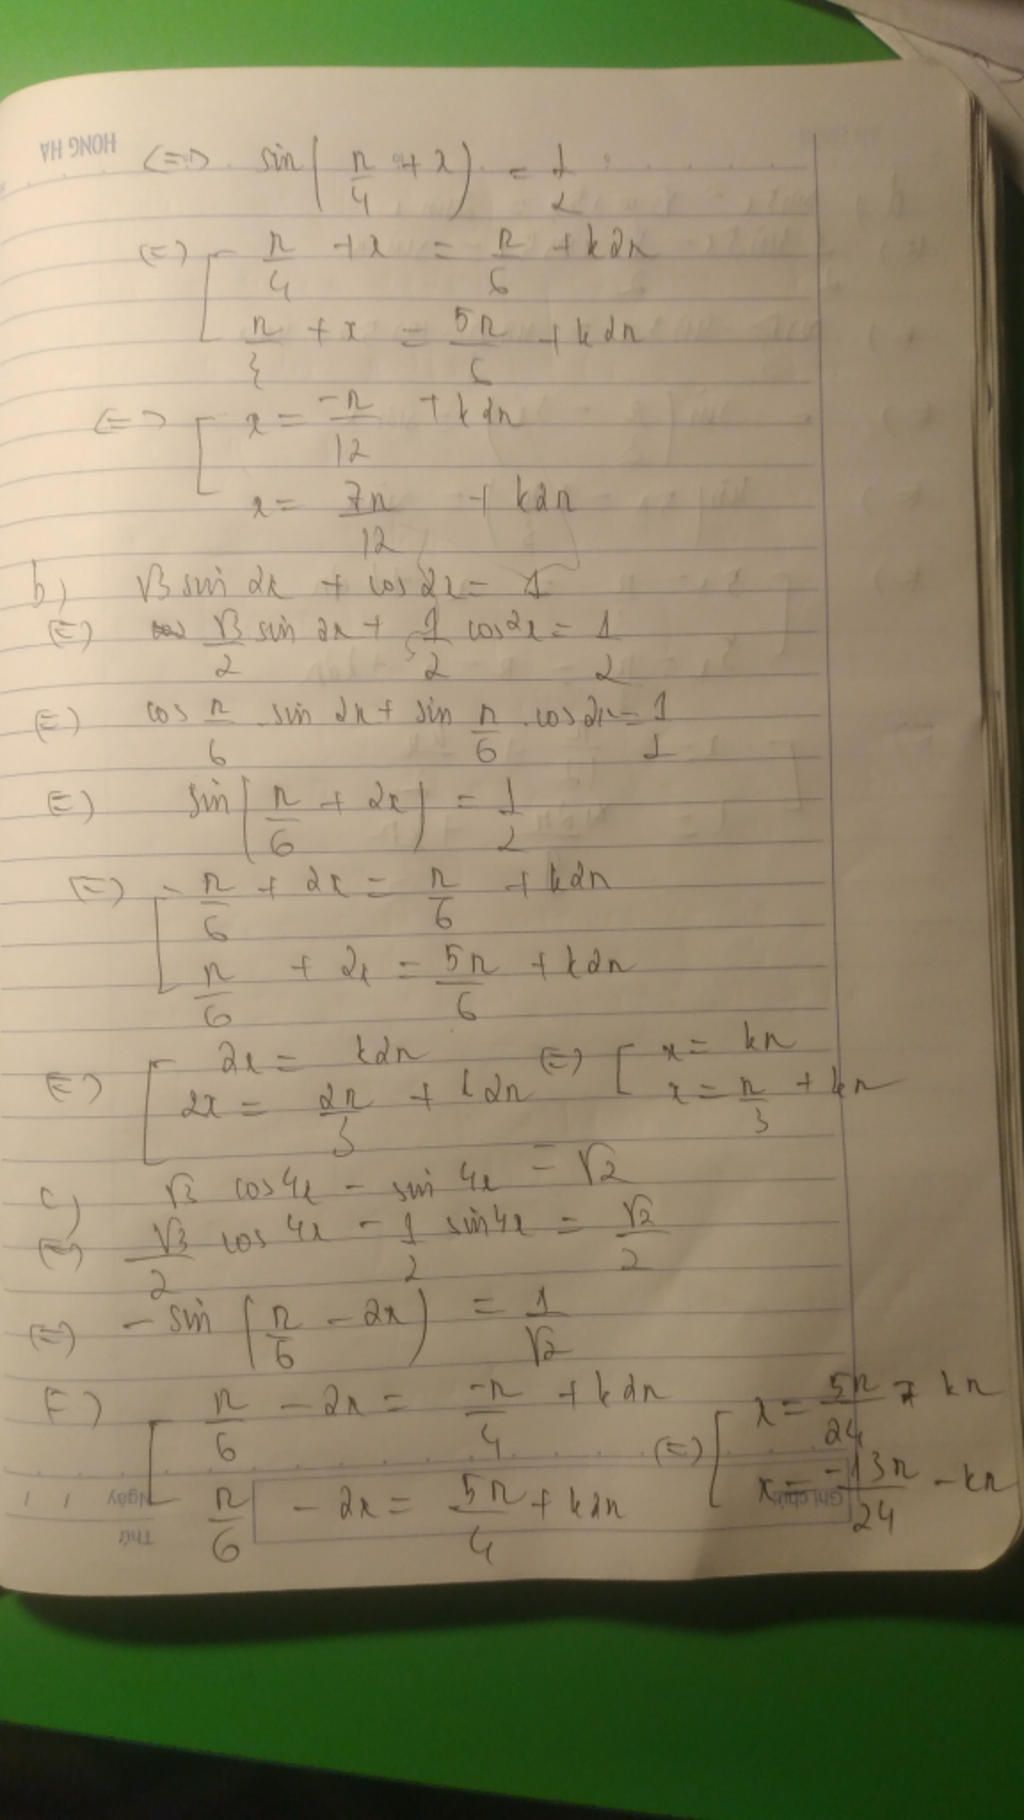 HONG HA
<=> sin(π/4 + x) = 1/2
<=> [ π/4 + x = π/6 + k2π
π/4 + x = 5π/6 + k2π
<=> [ x = -π/12 + k2π
x = 7π/12 + k2π
b) √3 sin 2x + cos 2x = 1
<=> √3/2 sin 2x + 1/2 cos 2x = 1/2
<=> cos π/6 . sin 2x + sin π/6 . cos 2x = 1/2
<=> sin(π/6 + 2x) = 1/2
<=> [ π/6 + 2x = π/6 + k2π
π/6 + 2x = 5π/6 + k2π
<=> [ 2x = k2π <=> [ x = kπ
2x = 2π/3 + k2π x = π/3 + kπ
c) √3 cos 4x - sin 4x = √2
<=> √3/2 cos 4x - 1/2 sin 4x = √2/2
<=> - sin(π/6 - 2x) = 1/√2
<=> [ π/6 - 2x = -π/4 + k2π <=> [ x = 5π/24 + kπ
π/6 - 2x = 5π/4 + k2π x = -13π/24 - kπ
Ghi chú
Ngày / /
Thứ